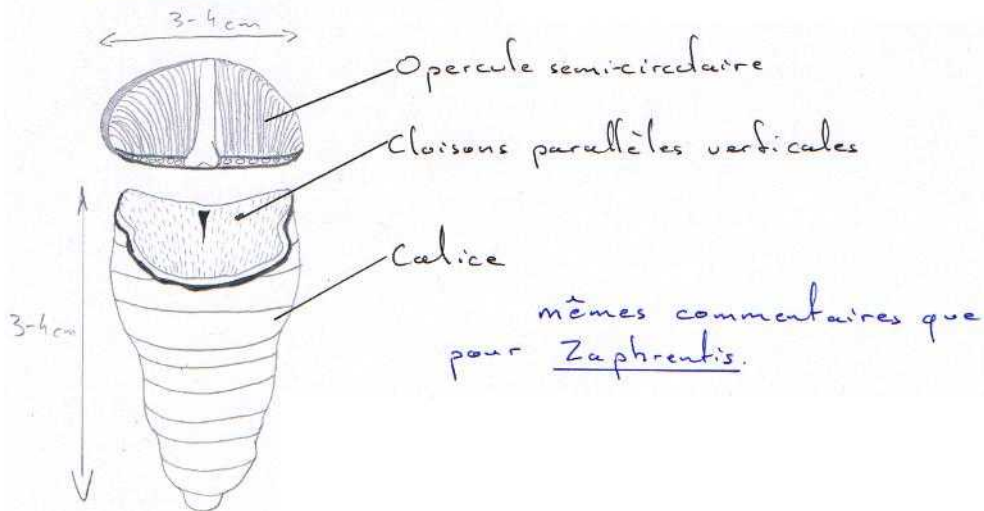 3-4 cm
Opercule semi-circulaire
Cloisons parallèles verticales
Calice
3-4 cm
mêmes commentaires que
pour Zaphrentis.